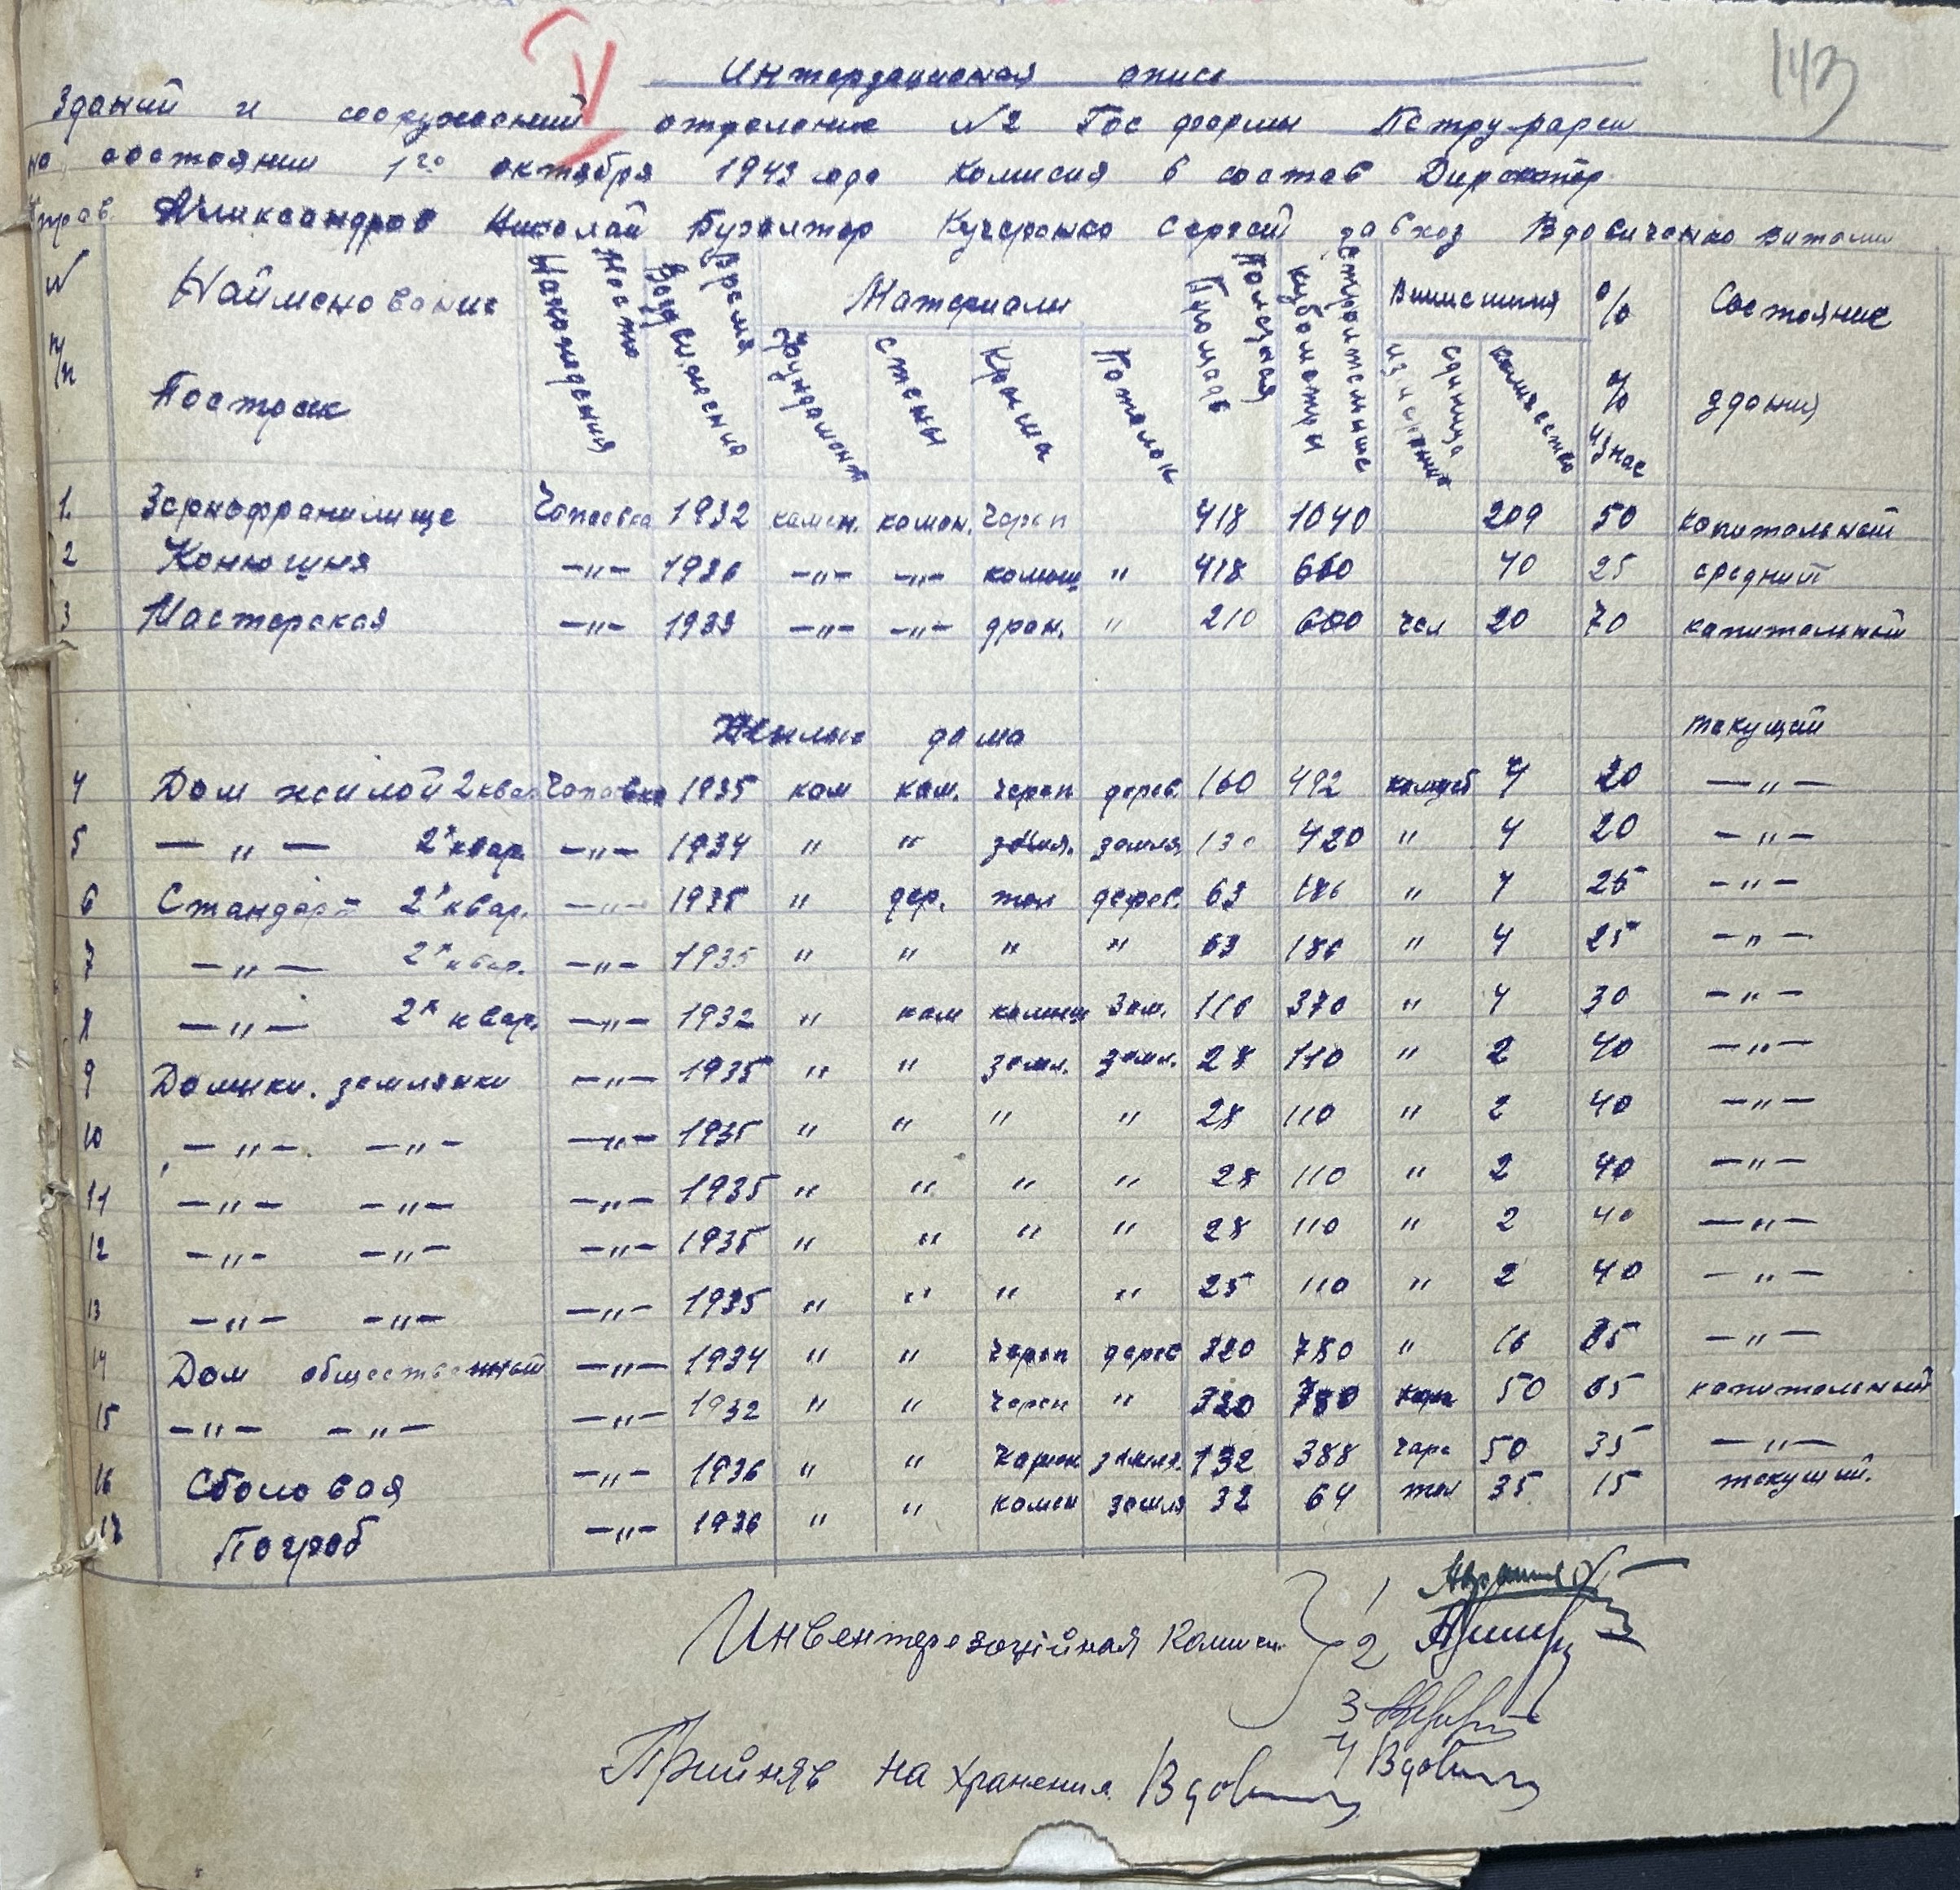 V
143
Интердационая описс
Зданий и сооружений отделение №2 Гос фермы Петру-рареш
на состоянии 1го октября 1943 года Комисия в состав Директор
Александров Николай Бухолтер Кучеренко Сергей завхоз Вдовиченко Витали
N п/п | Найменование Построек | Место Нахождения | Время Воздвижения | Материали | Фундамент | Стены | Крыша | Потолок | Полезная Площадь | Строительные кубометры | Вмисимия | единица измерения | количество | % % Изнас | Состояние здания
1. Зернофранилище Чапаевка 1932 камен. камен. череп 418 1040 209 50 капитальный
2 Конюшня —"— 1936 —"— —"— камыш " 418 660 40 25 средний
3 Мастерская —"— 1933 —"— —"— дран. " 210 600 чел 20 70 капитальный
Жылые дома текущий
4 Дом жилой 2 квар Чапаевка 1935 кам кам. череп дерев. 160 492 4 20 —"—
5 —"— 2х квар. —"— 1934 " " земл. земля 130 420 " 4 20 —"—
6 Стандарт 2х квар. —"— 1935 " дер. тол дерев. 63 186 " 4 25 —"—
7 —"— 2х квар. —"— 1935 " " " " 63 186 " 4 25 —"—
8 —"— 2х квар. —"— 1932 " кам камыш Зем. 116 370 " 4 30 —"—
9 Домики. землянки —"— 1935 " " земл. земл. 28 110 " 2 40 —"—
10 —"— —"— —"— 1935 " " " " 28 110 " 2 40 —"—
11 —"— —"— —"— 1935 " " " " 28 110 " 2 40 —"—
12 —"— —"— —"— 1935 " " " " 28 110 " 2 40 —"—
13 —"— —"— —"— 1935 " " " " 25 110 " 2 40 —"—
14 Дом общественный —"— 1934 " " череп дерев 320 780 " 16 35 —"—
15 —"— —"— —"— 1932 " " череп " 320 780 50 65 капитальный
16 Сболовая —"— 1936 " " земля. 132 388 50 35 —"—
17 Погреб —"— 1936 " " камен земля 32 64 35 15 текущий.
Инвентерезацийная Комиси 1
2
3
4 Вдович
Прийняв на хранения Вдович